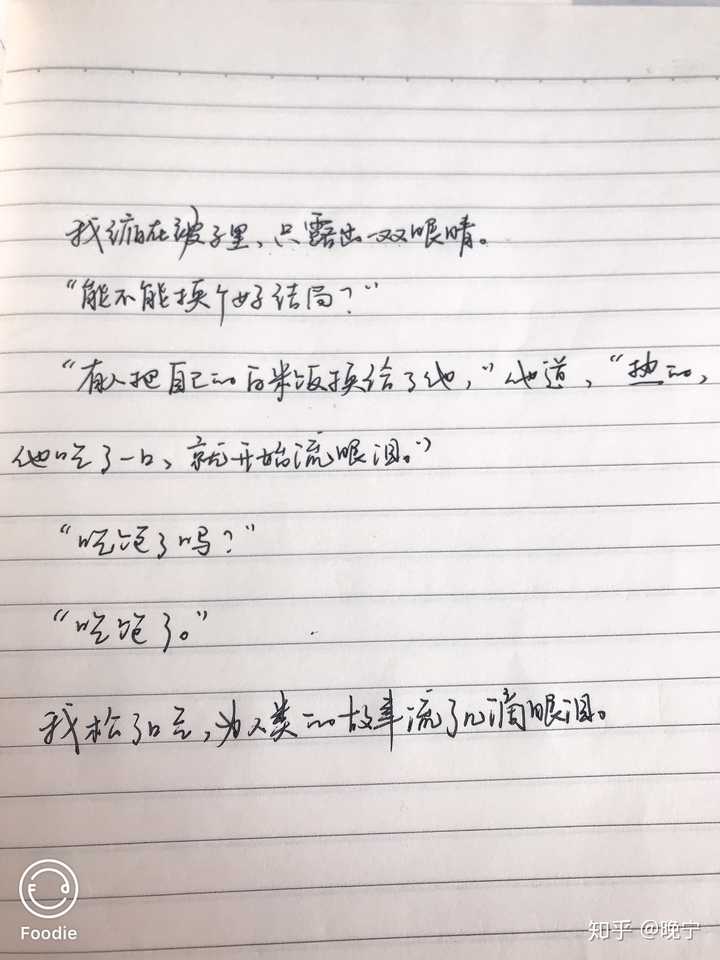 我缩在被子里，只露出一双眼睛。
“能不能换个好结局？”
“有人把自己的白米饭换给了他，”他道，“热的，
他吃了一口，就开始流眼泪。”
“吃饱了吗？”
“吃饱了。”
我松了口气，为人类的故事流了几滴眼泪。
Foodie
知乎 @晚宁